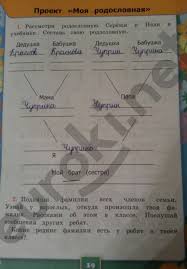 Проект «Моя родословная»
1. Рассмотри родословную Серёжи и Нади в
учебнике. Составь свою родословную.
Дедушка Бабушка Дедушка Бабушка
Чуприн Чуприна
Мама Папа
Чуприна Чуприн
Я
Чуприна
Мой брат (сестра)
2. Подпиши фамилии всех членов семьи.
Узнай у взрослых, откуда произошла твоя фа-
милия. Расскажи об этом в классе. Послушай
сообщения других ребят.
Какие редкие фамилии есть у ребят в твоём
классе?